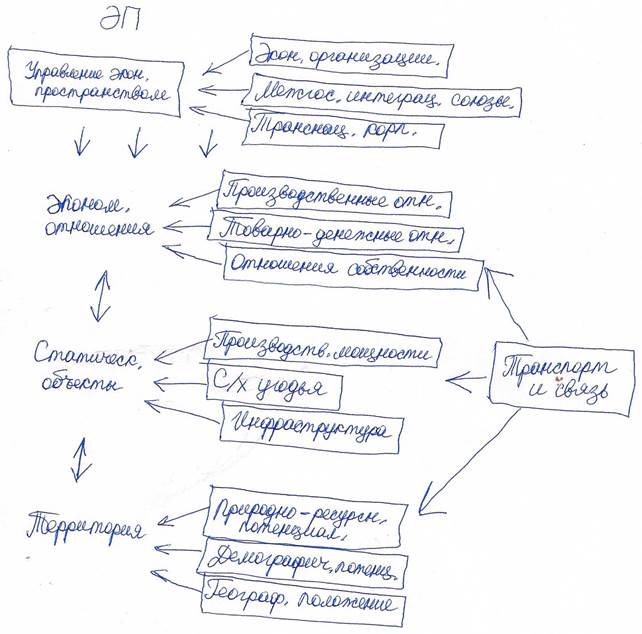 ЭП
Управление экон.
пространством
Экон. организации.
Межгос. интеграц. союзы.
Транснац. корп.
Эконом.
отношения
Производственные отн.
Товарно-денежные отн.
Отношения собственности
Статическ.
объекты
Производств. мощности
С/х угодья
Инфраструктура
Транспорт
и связь
Территория
Природно-ресурсн.
потенциал.
Демографич. потенц.
Географ. положение